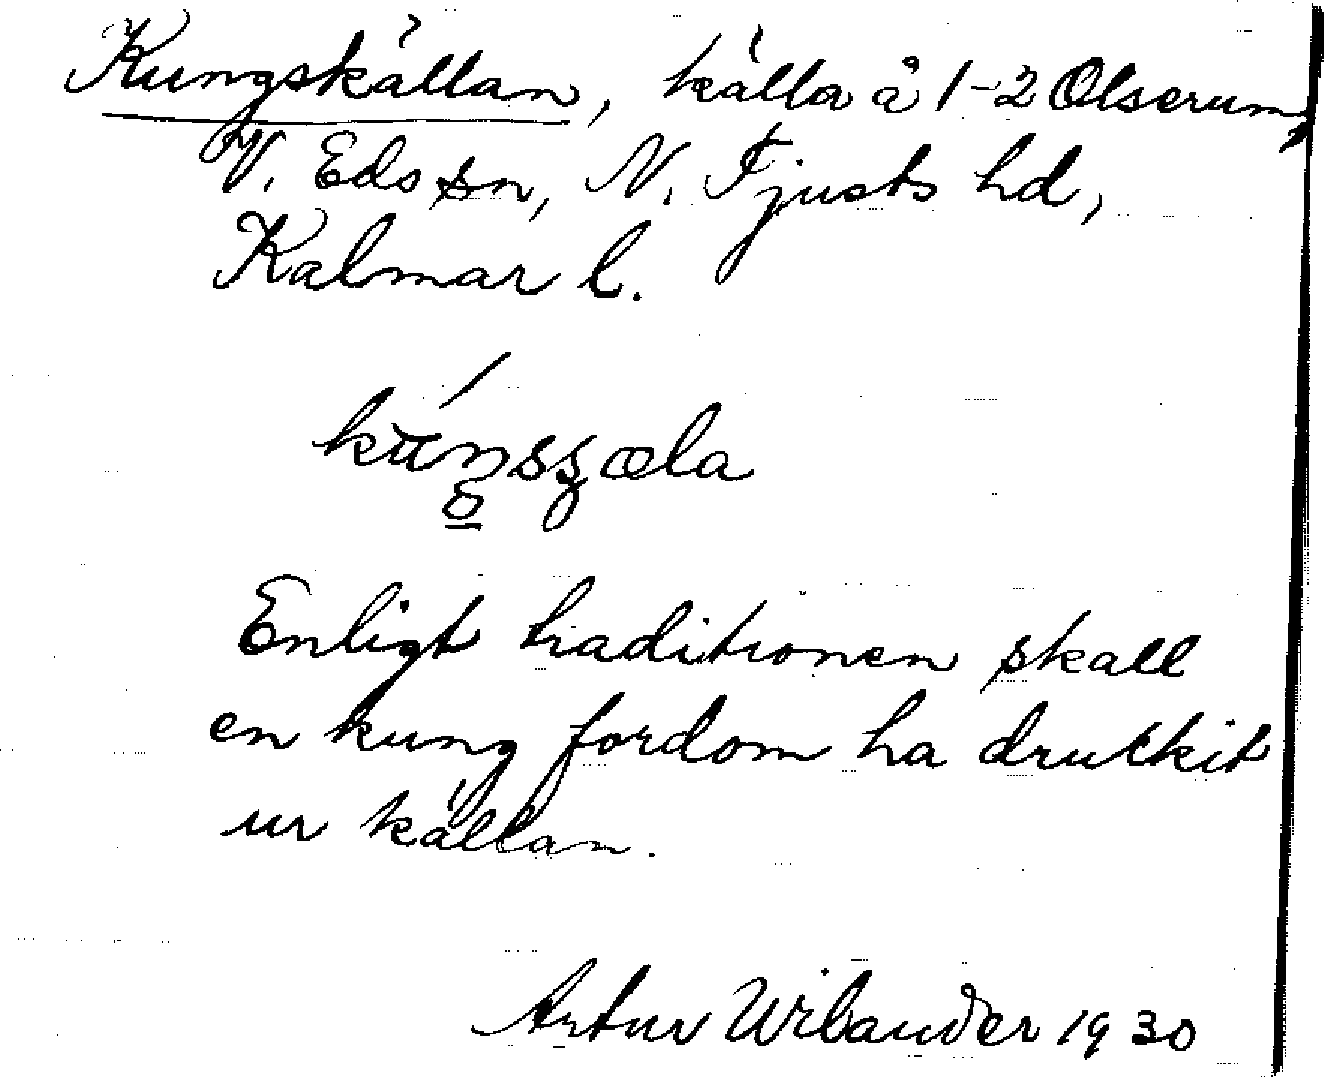 Kungskällan, källa å 1-2 Olserum,
V. Eds sn, N. Tjusts hd,
Kalmar l.
Enligt traditionen skall
en kung fordom ha druckit
ur källan.
Artur Wilander 1930